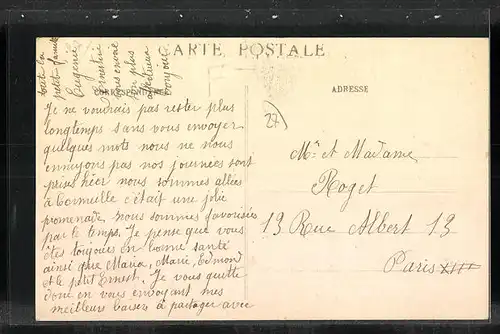 CARTE POSTALE
CORRESPONDANCE
ADRESSE
Je ne voudrais pas rester plus
longtemps sans vous envoyer
quelques mots nous ne nous
ennuyons pas nos journées sont
prises hier nous sommes allées
à Cormeille c'était une jolie
promenade. Nous sommes favorisées
par le temps. Je pense que vous
êtes toujours en bonne santé
ainsi que Maria, Marie, Edmond
et le petit Ernest. Je vous quitte
donc en vous envoyant mes
meilleurs baisers à partager avec
toute la
petite famille
Eugénie
Ernestine
vous envoie
son plus
affectueux
bonjour
27
Mr et Madame
Roget
13 Rue Albert 13
Paris XIII